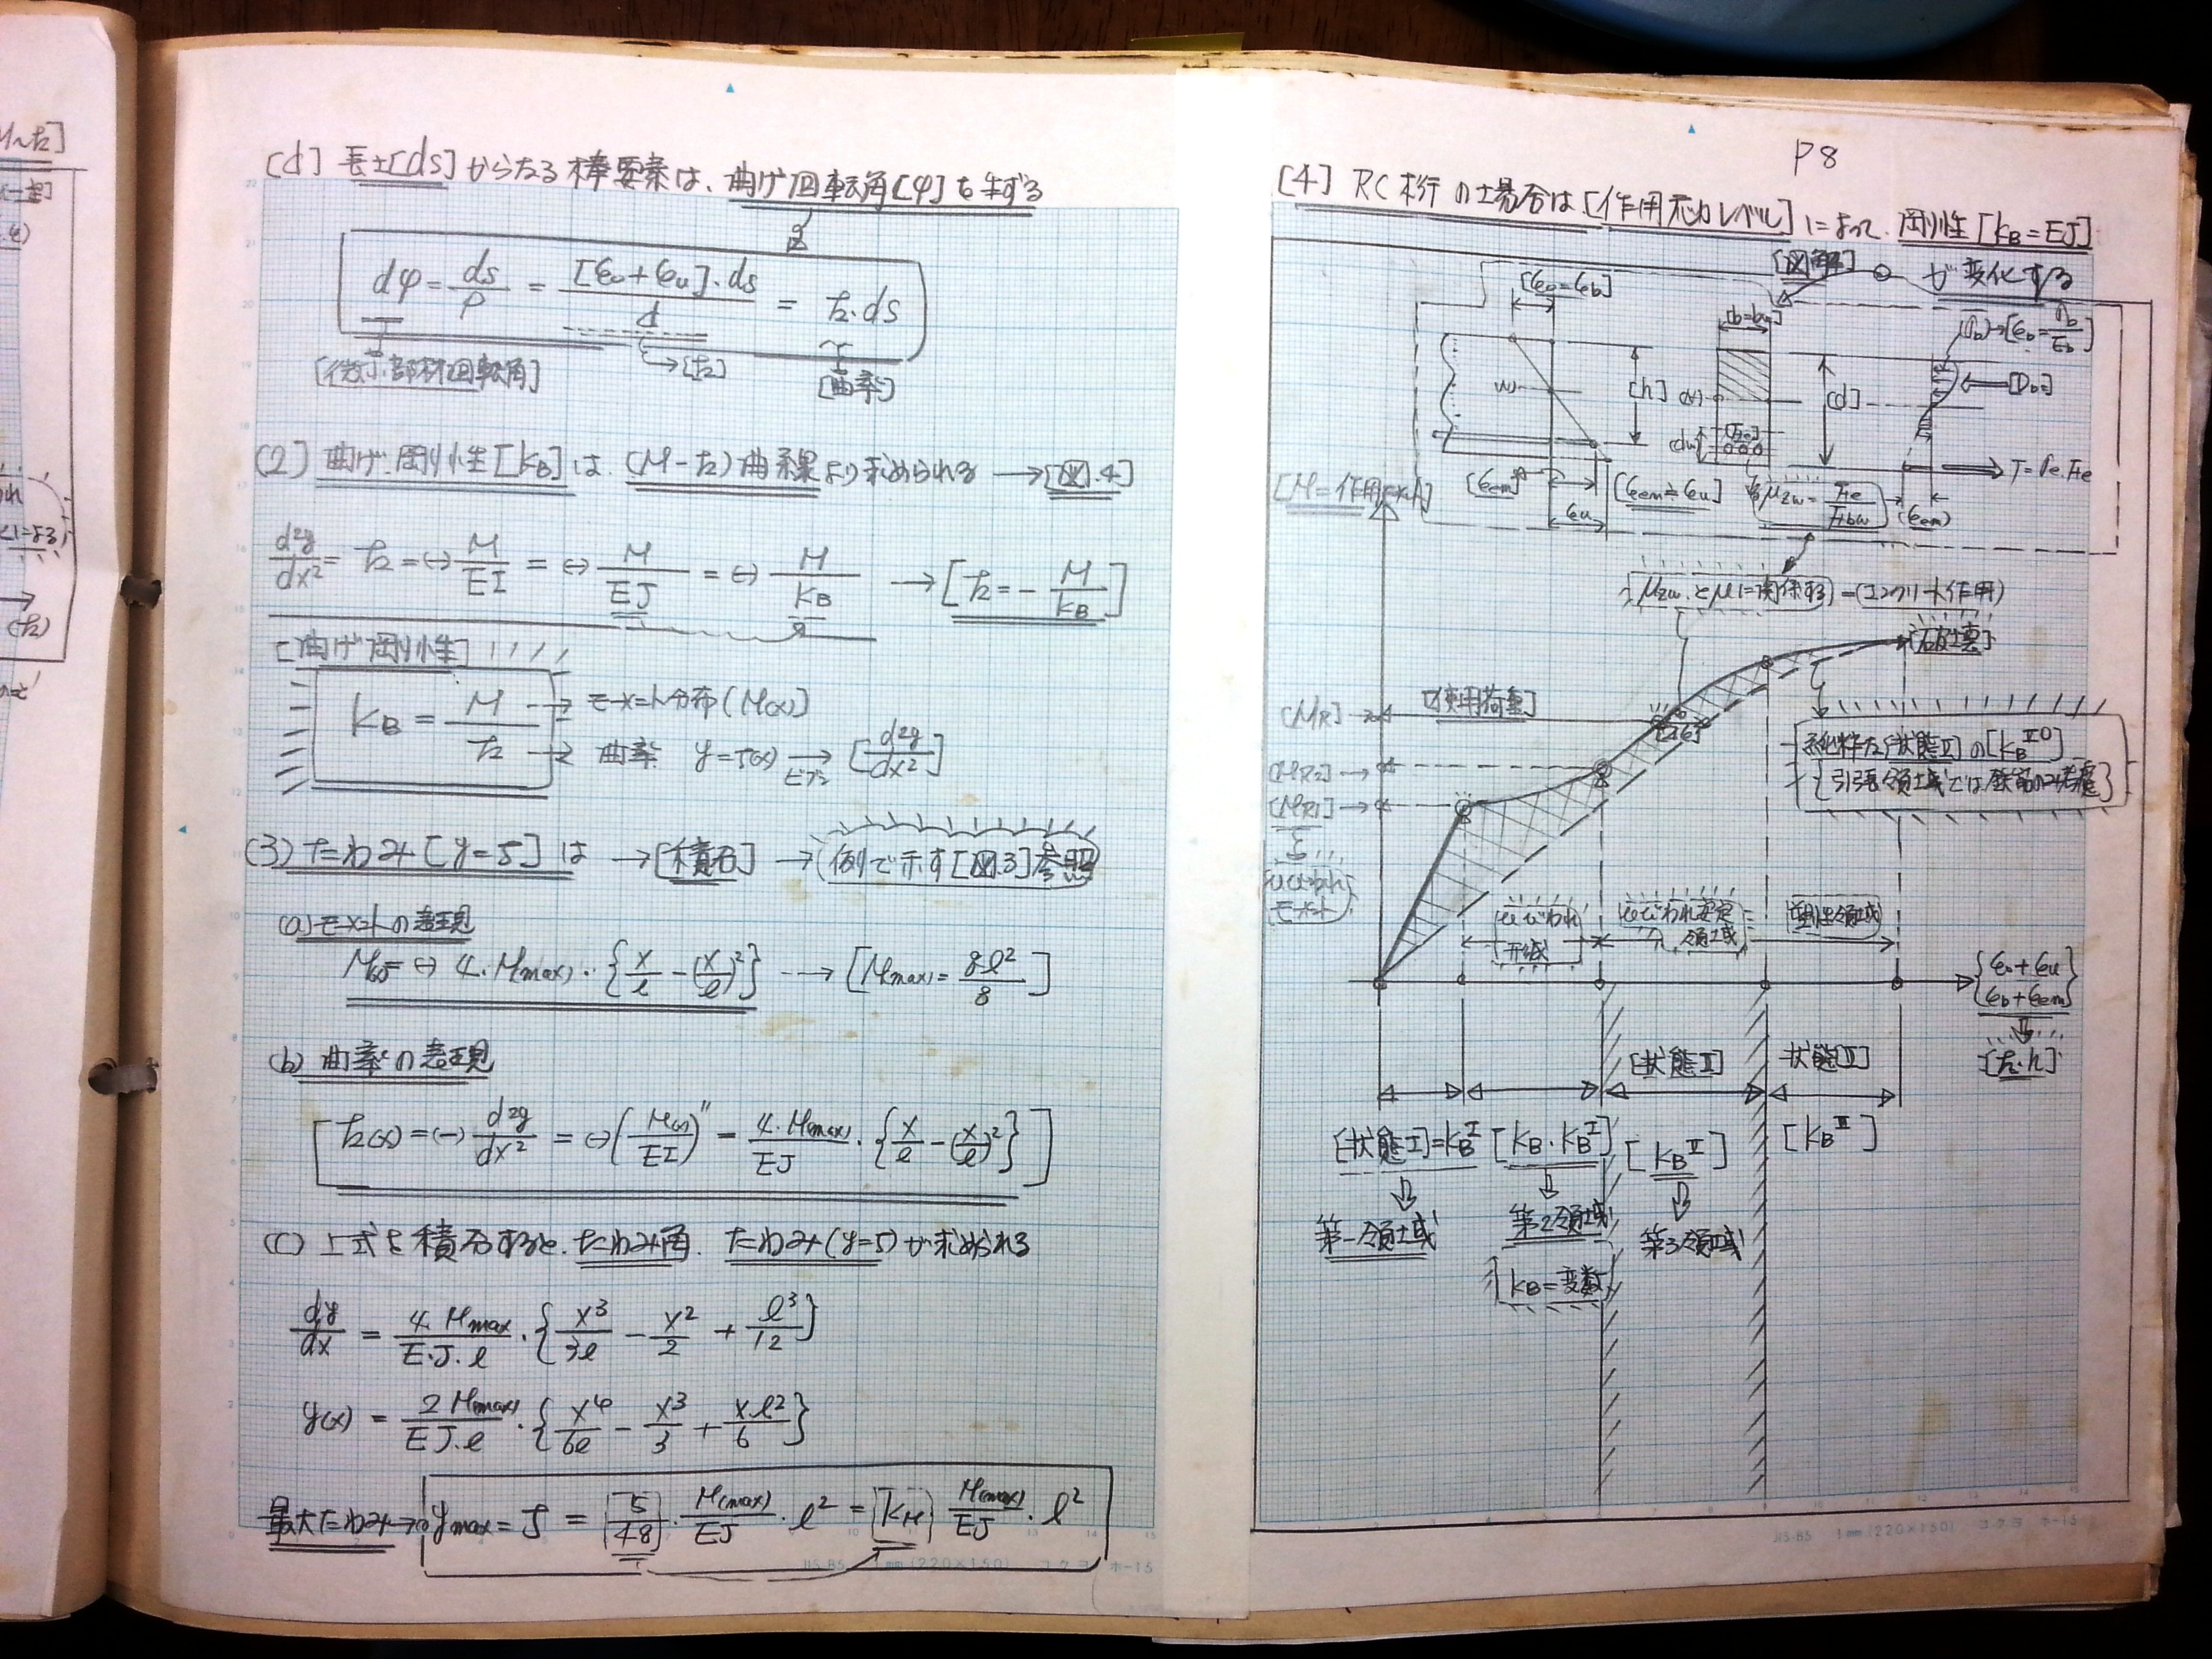 [d] 長さ[ds]からなる棒要素は、曲げ回転角[φ]を生ずる
dφ = ds/ρ = [εo+εu]·ds/d = k·ds
→[k]
[微小部材回転角]
[曲率]
(2) 曲げ剛性[KB]は、(M-k)曲線より求められる →[図.4]
d²y/dx² = k = (-) M/EI = (-) M/EJ = (-) M/KB → [k = - M/KB]
[曲げ剛性]
KB = M/k
→ モーメント分布(M(x))
→ 曲率 y=δ(x) → [d²y/dx²]
(3) たわみ[y=δ]は →[積分] →(例で示す[図.3]参照)
(a) モーメントの表現
M(x) = (-) 4·M(max)·{x/l - (x/l)²} → [M(max) = ql²/8]
(b) 曲率の表現
k(x) = (-) d²y/dx² = (-)(M(x)/EI)'' = 4·M(max)/EJ·{x/l - (x/l)²}
(c) 上式を積分すると、たわみ角、たわみ(y=δ)が求められる
dy/dx = 4·Mmax/E·J·l·{x³/3l - x²/2 + l³/12}
y(x) = 2M(max)/EJ·l·{x⁴/6l - x³/3 + x·l²/6}
最大たわみ→ ymax = δ = [5/48]·M(max)/EJ·l² = [KM] M(max)/EJ·l²
JIS·B5 1mm(220×150) コクヨ ホ-15
P8
[4] RC桁の場合は[作用応力レベル]によって、剛性[KB=EJ]
が変化する
[図解]
[εo=εb]
(σb)→[εb=σb/Eb]
[h]
(x)
[d]
[Db]
(dw)
T=σe·Fe
[εem]
[εem≒εu]
εu
μzw = Fe/Fbw
(εem)
[M=作用モーメント]
{μzw とμに関係する}-(コンクリート作用)
[破壊]
[MR]→
[使用荷重]
[MR2]→
[MR1]→
ひびわれ
モーメント
純粋な[状態Ⅱ]の[KB Ⅱ0]
{引張領域では鉄筋のみ考慮}
ひびわれ
形成
ひびわれ安定
領域
[塑性領域]
{εo+εu / εb+εem}
[k·h]
[状態Ⅱ]
状態[Ⅲ]
[状態Ⅰ]=KBⅠ
[KB·KBⅠ]
[KBⅡ]
[KBⅢ]
第一領域
第2領域
第3領域
KB=変数
JIS·B5 1mm(220×150) コクヨ ホ-15